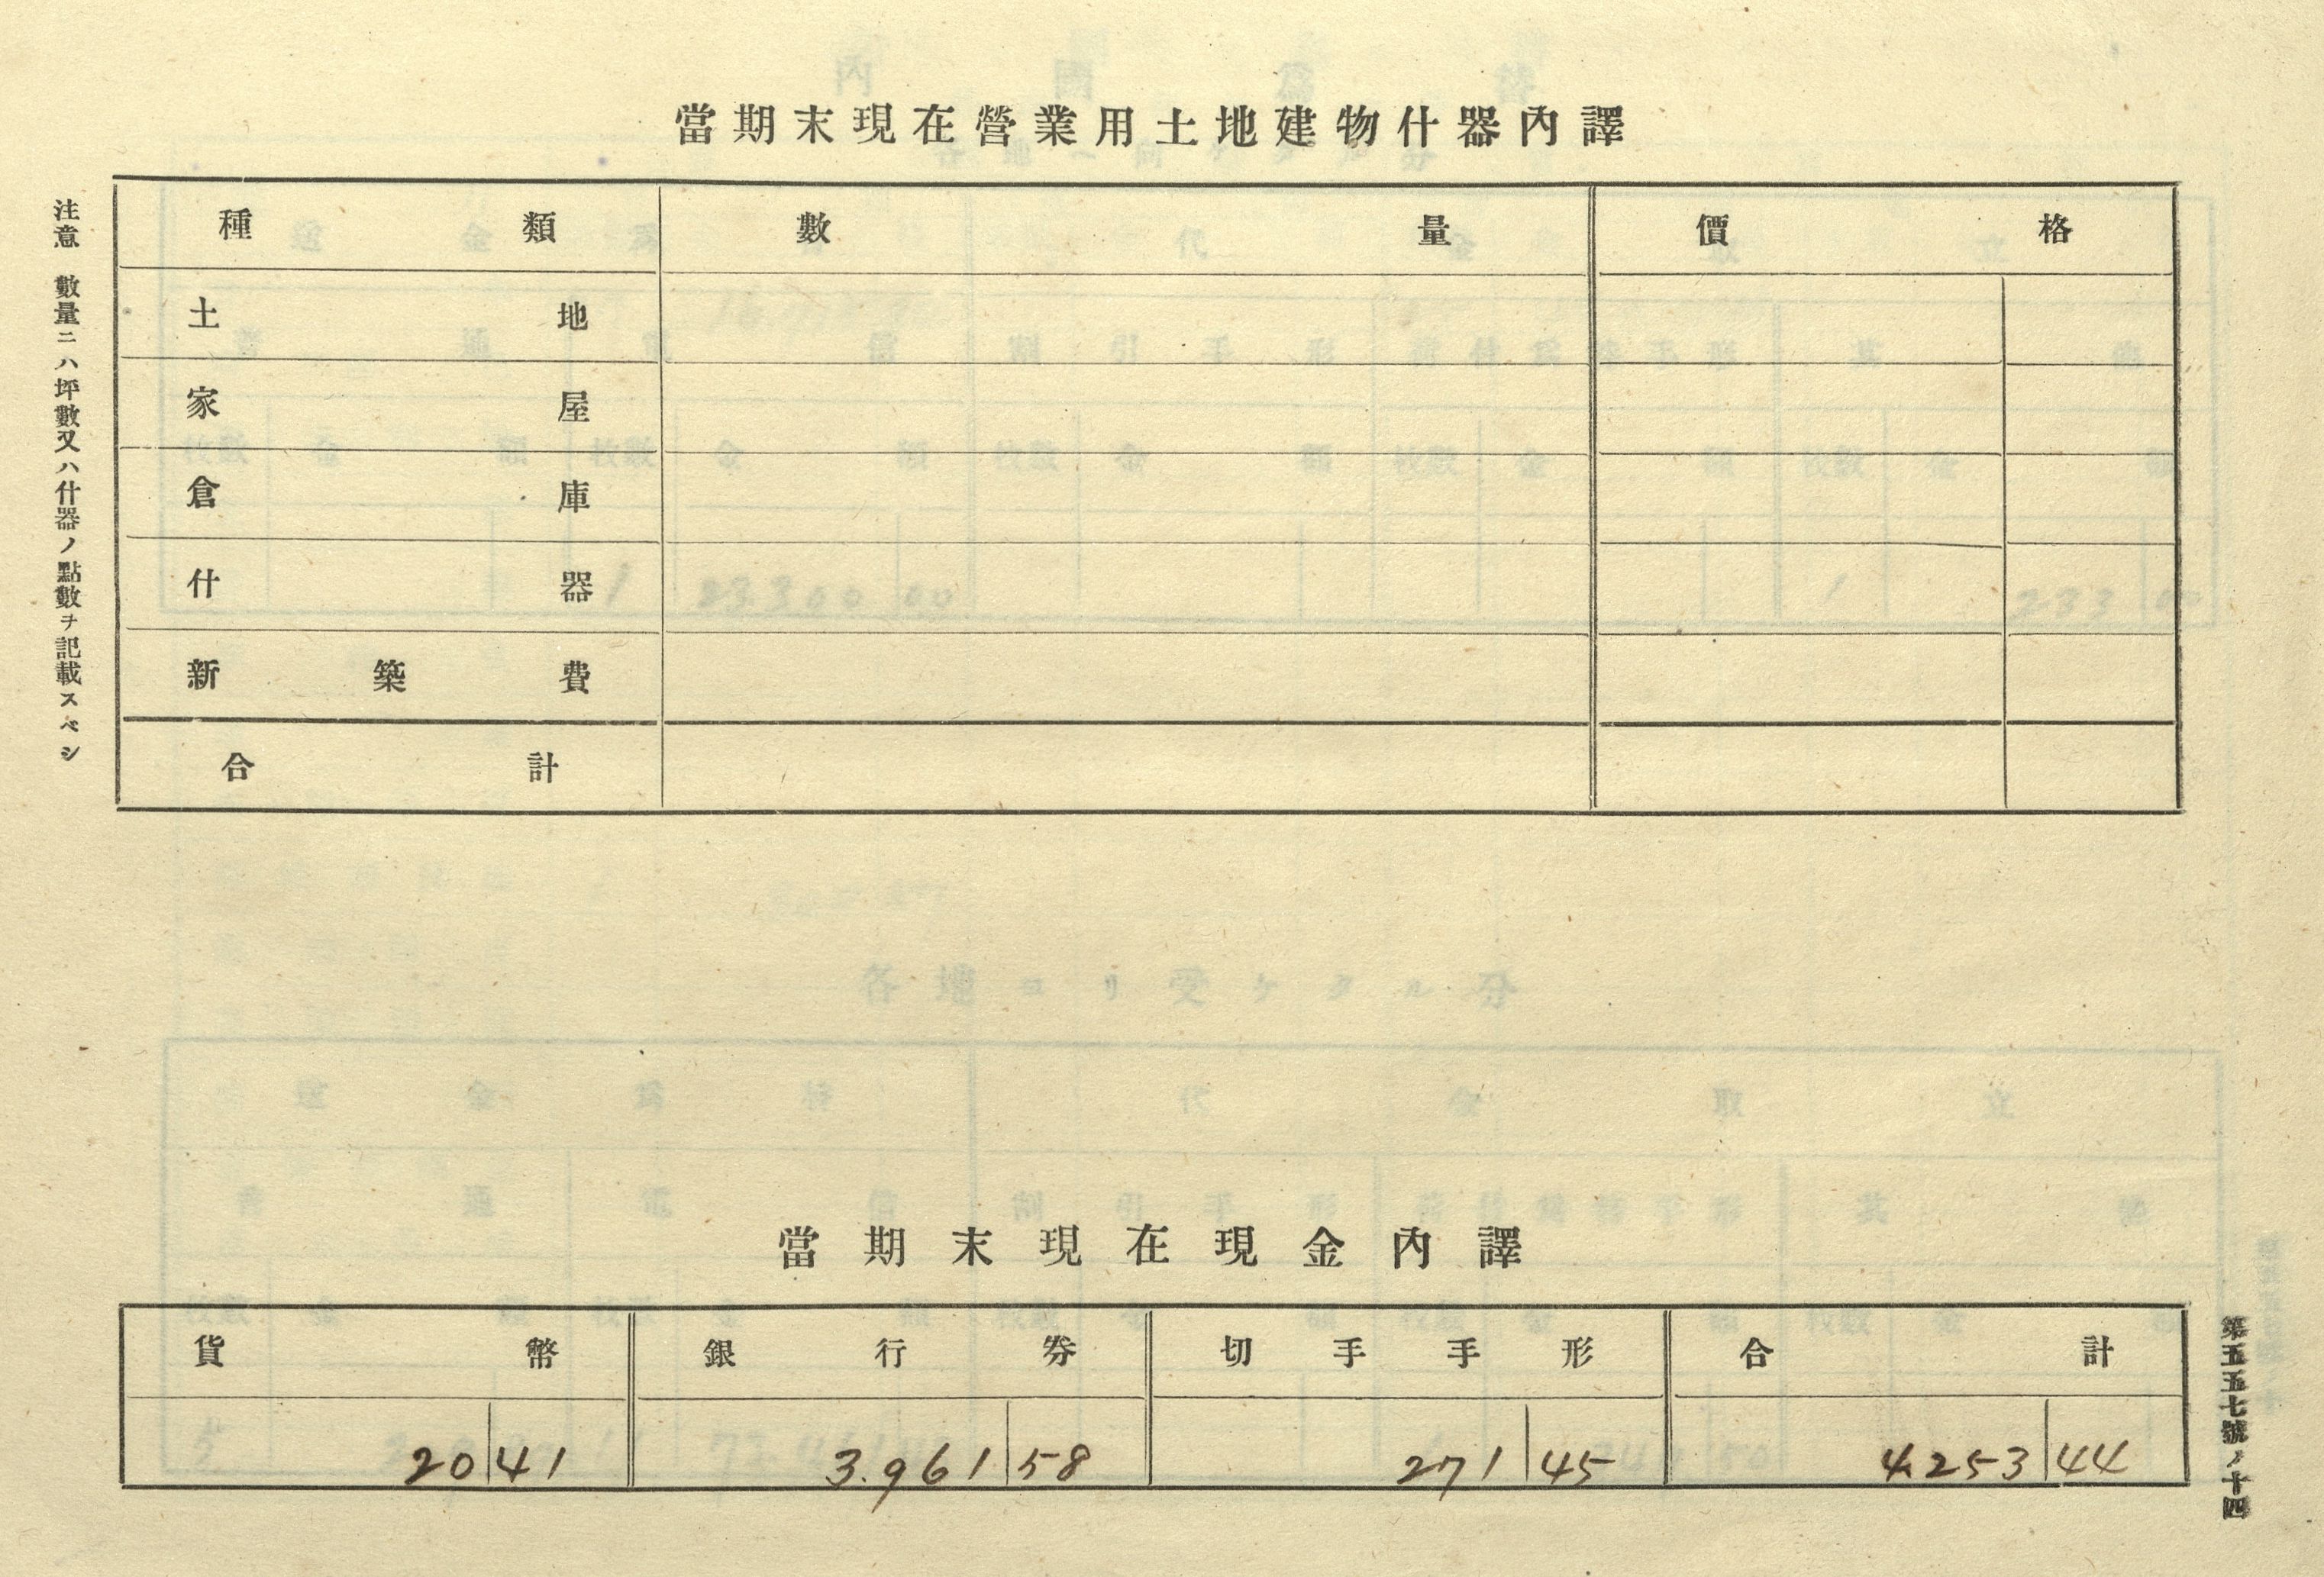 當期末現在營業用土地建物什器內譯
注意 數量ニハ坪數又ハ什器ノ點數ヲ記載スベシ
種類 數量 價格
土地
家屋
倉庫
什器
新築費
合計
當期末現在現金內譯
貨幣 銀行券 切手手形 合計
20 41 3.961 58 271 45 4.253 44
第五五七號ノ十四